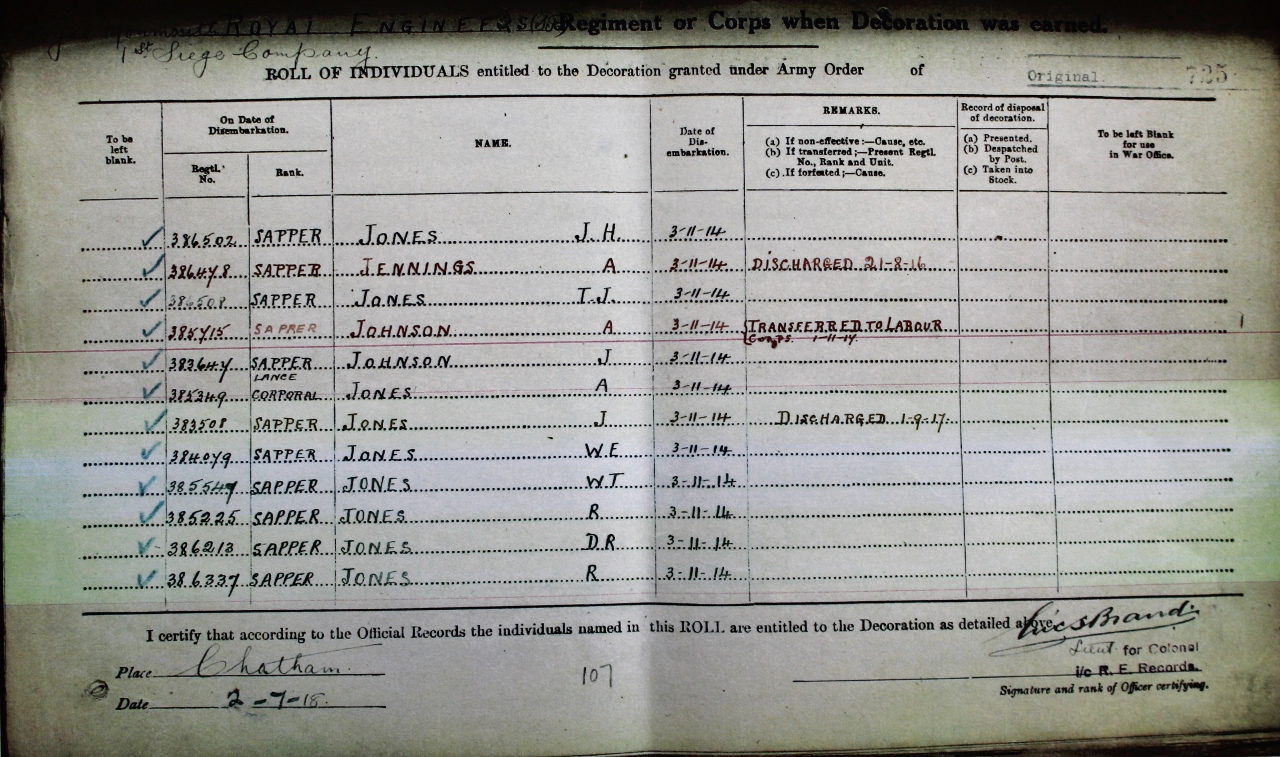 ROYAL ENGINEERS Regiment or Corps when Decoration was earned.
1st Siege Company.
ROLL OF INDIVIDUALS entitled to the Decoration granted under Army Order of Original. 725
To be left blank.
On Date of Disembarkation.
Regtl. No.
Rank.
NAME.
Date of Dis-embarkation.
REMARKS.
(a) If non-effective:—Cause, etc.
(b) If transferred;—Present Regtl. No., Rank and Unit.
(c) If forfeited;—Cause.
Record of disposal of decoration.
(a) Presented.
(b) Despatched by Post.
(c) Taken into Stock.
To be left Blank for use in War Office.
✓ 386502 SAPPER JONES J.H 3-11-14
✓ 386478 SAPPER JENNINGS A 3-11-14 DISCHARGED 21-8-16
✓ 386508 SAPPER JONES T.J. 3-11-14
✓ 385715 SAPPER JOHNSON A 3-11-14 TRANSFERRED TO LABOUR
CORPS. 1-11-17.
✓ 383647 SAPPER JOHNSON J 3-11-14
LANCE
✓ 385349 CORPORAL JONES A 3-11-14
✓ 383508 SAPPER JONES J 3-11-14 DISCHARGED 1-9-17.
✓ 384079 SAPPER JONES W E 3-11-14
✓ 385547 SAPPER JONES W T 3-11-14
✓ 385225 SAPPER JONES R 3-11-14
✓ 386213 SAPPER JONES D R 3-11-14
✓ 386337 SAPPER JONES R 3-11-14
I certify that according to the Official Records the individuals named in this ROLL are entitled to the Decoration as detailed above.
Eric S Brand
Lieut for Colonel
i/c R. E. Records.
Place Chatham.
107
Signature and rank of Officer certifying.
Date 2-7-18.